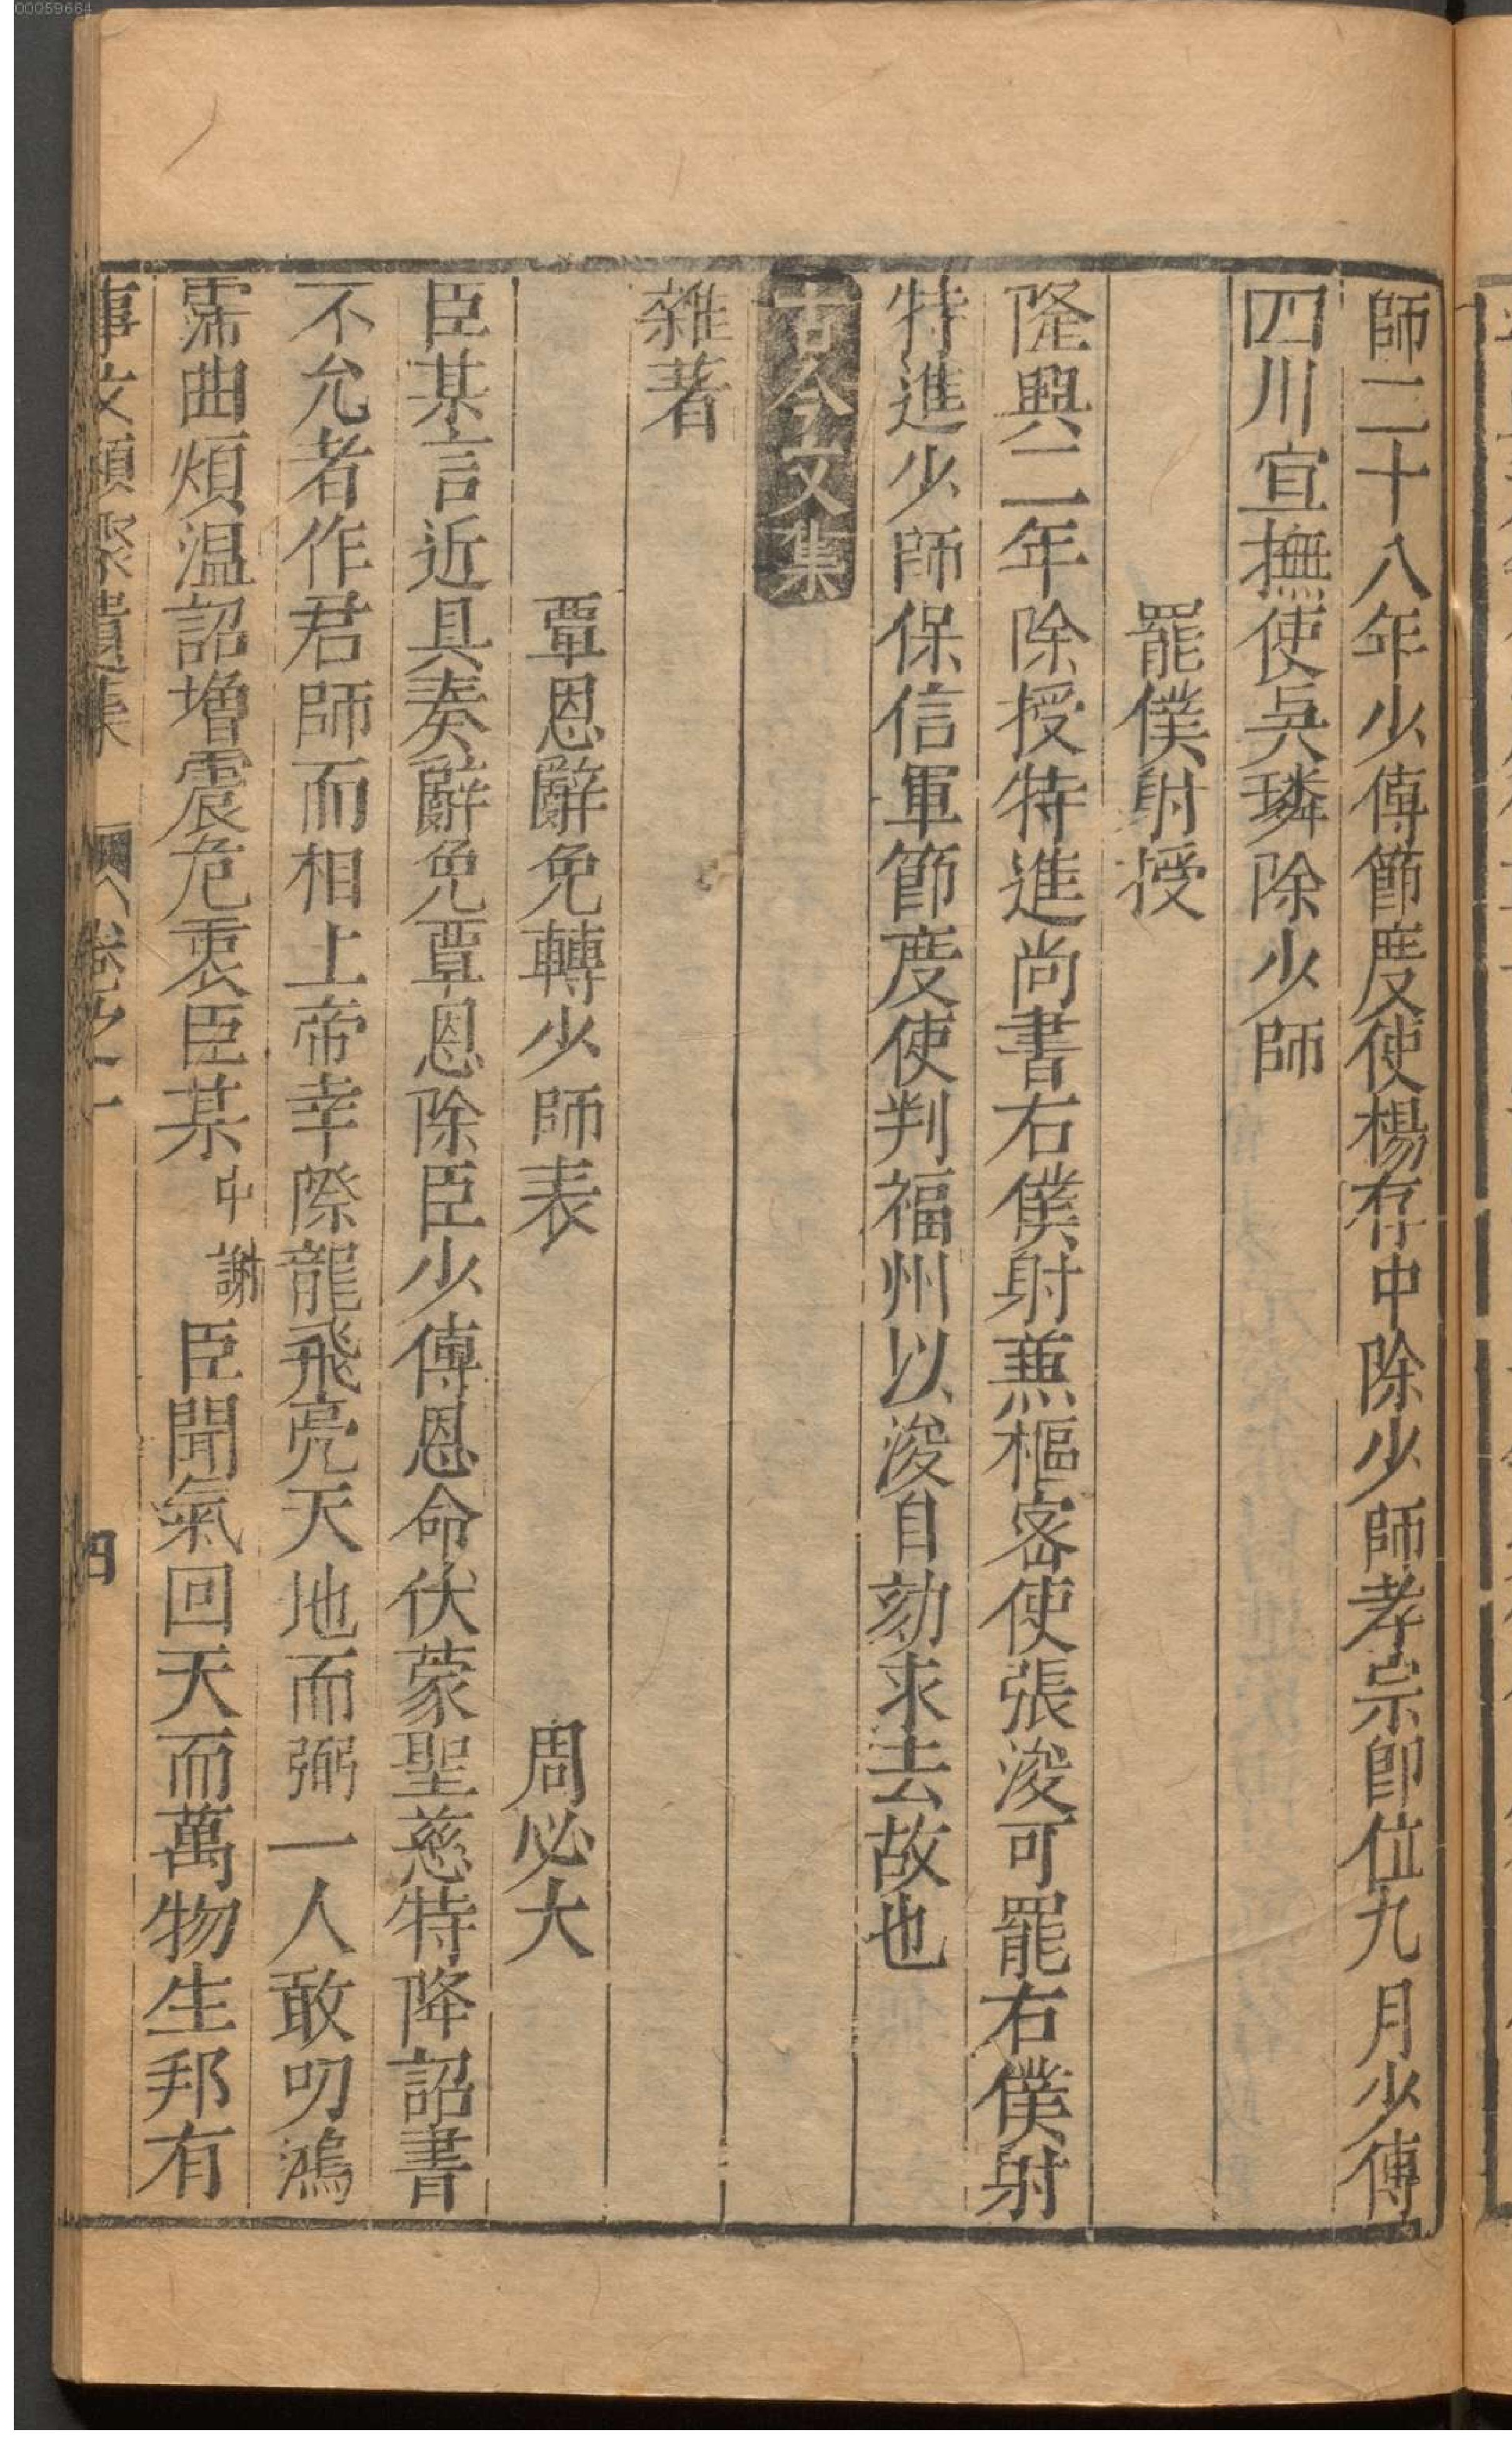 師二十八年少傅節度使楊存中除少師孝宗即位九月少傅
四川宣撫使吳璘除少師
罷僕射授
隆興二年除授特進尚書右僕射兼樞密使張浚可罷右僕射
特進少師保信軍節度使判福州以浚自劾求去故也
古今文集
雜著
覃恩辭免轉少師表 周必大
臣某言近具奏辭免覃恩除臣少傅恩命伏蒙聖慈特降詔書
不允者作君師而相上帝幸際龍飛亮天地而弼一人敢叨鴻
霈曲煩温詔增震危衷臣某中謝臣聞氣回天而萬物生邦有
事文類聚遺集 卷之一 四
00059664